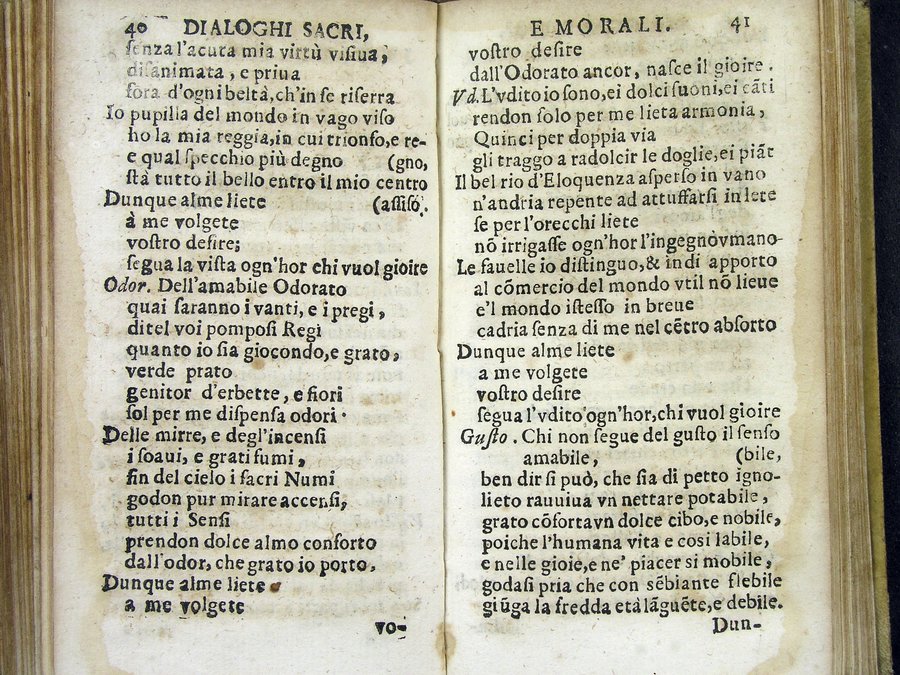 40 DIALOGHI SACRI,
ſenza l'acuta mia virtù viſiua,
diſanimata, e priua
fora d'ogni beltà, ch'in ſe riſerra
Io pupilla del mondo in vago viſo
ho la mia reggia, in cui trionfo, e re-
e qual ſpecchio più degno (gno,
ſtà tutto il bello entro il mio centro
Dunque alme liete (aſſiſo.
à me volgete
voſtro deſire;
ſegua la viſta ogn'hor chi vuol gioire
Odor. Dell'amabile Odorato
quai ſaranno i vanti, e i pregi,
ditel voi pompoſi Regi
quanto io ſia giocondo, e grato,
verde prato
genitor d'erbette, e fiori
ſol per me diſpenſa odori.
Delle mirre, e degl'incenſi
i ſoaui, e grati fumi,
fin del cielo i ſacri Numi
godon pur mirare accenſi,
tutti i Senſi
prendon dolce almo conforto
dall'odor, che grato io porto,
Dunque alme liete
a me volgete
vo-
E MORALI. 41
voſtro deſire
dall'Odorato ancor, naſce il gioire.
Vd. L'vdito io ſono, ei dolci ſuoni, ei cãti
rendon ſolo per me lieta armonia,
Quinci per doppia via
gli traggo a radolcir le doglie, ei piãt
Il bel rio d'Eloquenza aſperſo in vano
n'andria repente ad attuffarſi in lete
ſe per l'orecchi liete
nõ irrigaſſe ogn'hor l'ingegno vmano
Le fauelle io diſtinguo, & indi apporto
al cõmercio del mondo vtil nõ lieue
e'l mondo iſteſſo in breue
cadria ſenza di me nel cẽtro abſorto
Dunque alme liete
a me volgete
voſtro deſire
ſegua l'vdito ogn'hor, chi vuol gioire
Guſto. Chi non ſegue del guſto il ſenſo
amabile, (bile,
ben dir ſi può, che ſia di petto igno-
lieto rauuiua vn nettare potabile,
grato cõforta vn dolce cibo, e nobile,
poiche l'humana vita e cosi labile,
e nelle gioie, e ne' piacer si mobile,
godaſi pria che con sẽbiante flebile
giũga la fredda età lãguẽte, e debile.
Dun-